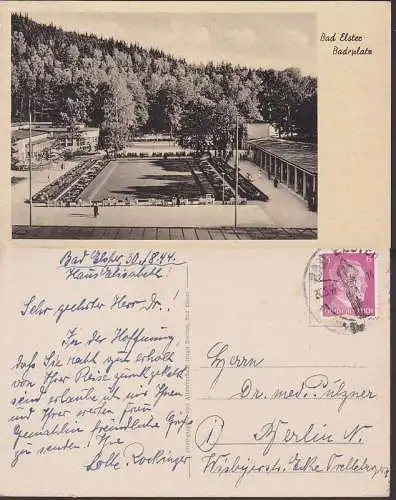 Bad Elster
Badeplatz
Bad Elster, 30./8.44.
Haus Elisabeth!
Sehr geehrter Herr Dr.!
In der Hoffnung,
daß Sie recht gut erholt
von Ihrer Reise zurückgekehrt
sind erlaube ich mir Ihnen
und Ihrer werten Frau
Gemahlin freundliche Grüße
zu senden. Ihre
Lotte Rockinger
Herrn
Dr. med. Pützner
Berlin N.
Wisbyerstr. Ecke Trelleborger
6